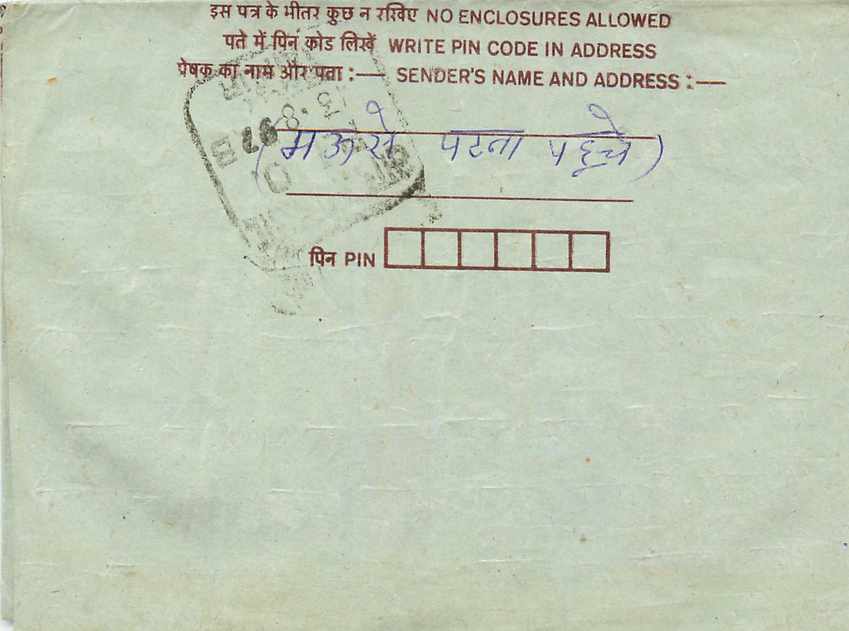 इस पत्र के भीतर कुछ न रखिए NO ENCLOSURES ALLOWED
पते में पिन कोड लिखें WRITE PIN CODE IN ADDRESS
प्रेषक का नाम और पता :— SENDER'S NAME AND ADDRESS :—
(मऊ से पटना पहुंचे)
पिन PIN